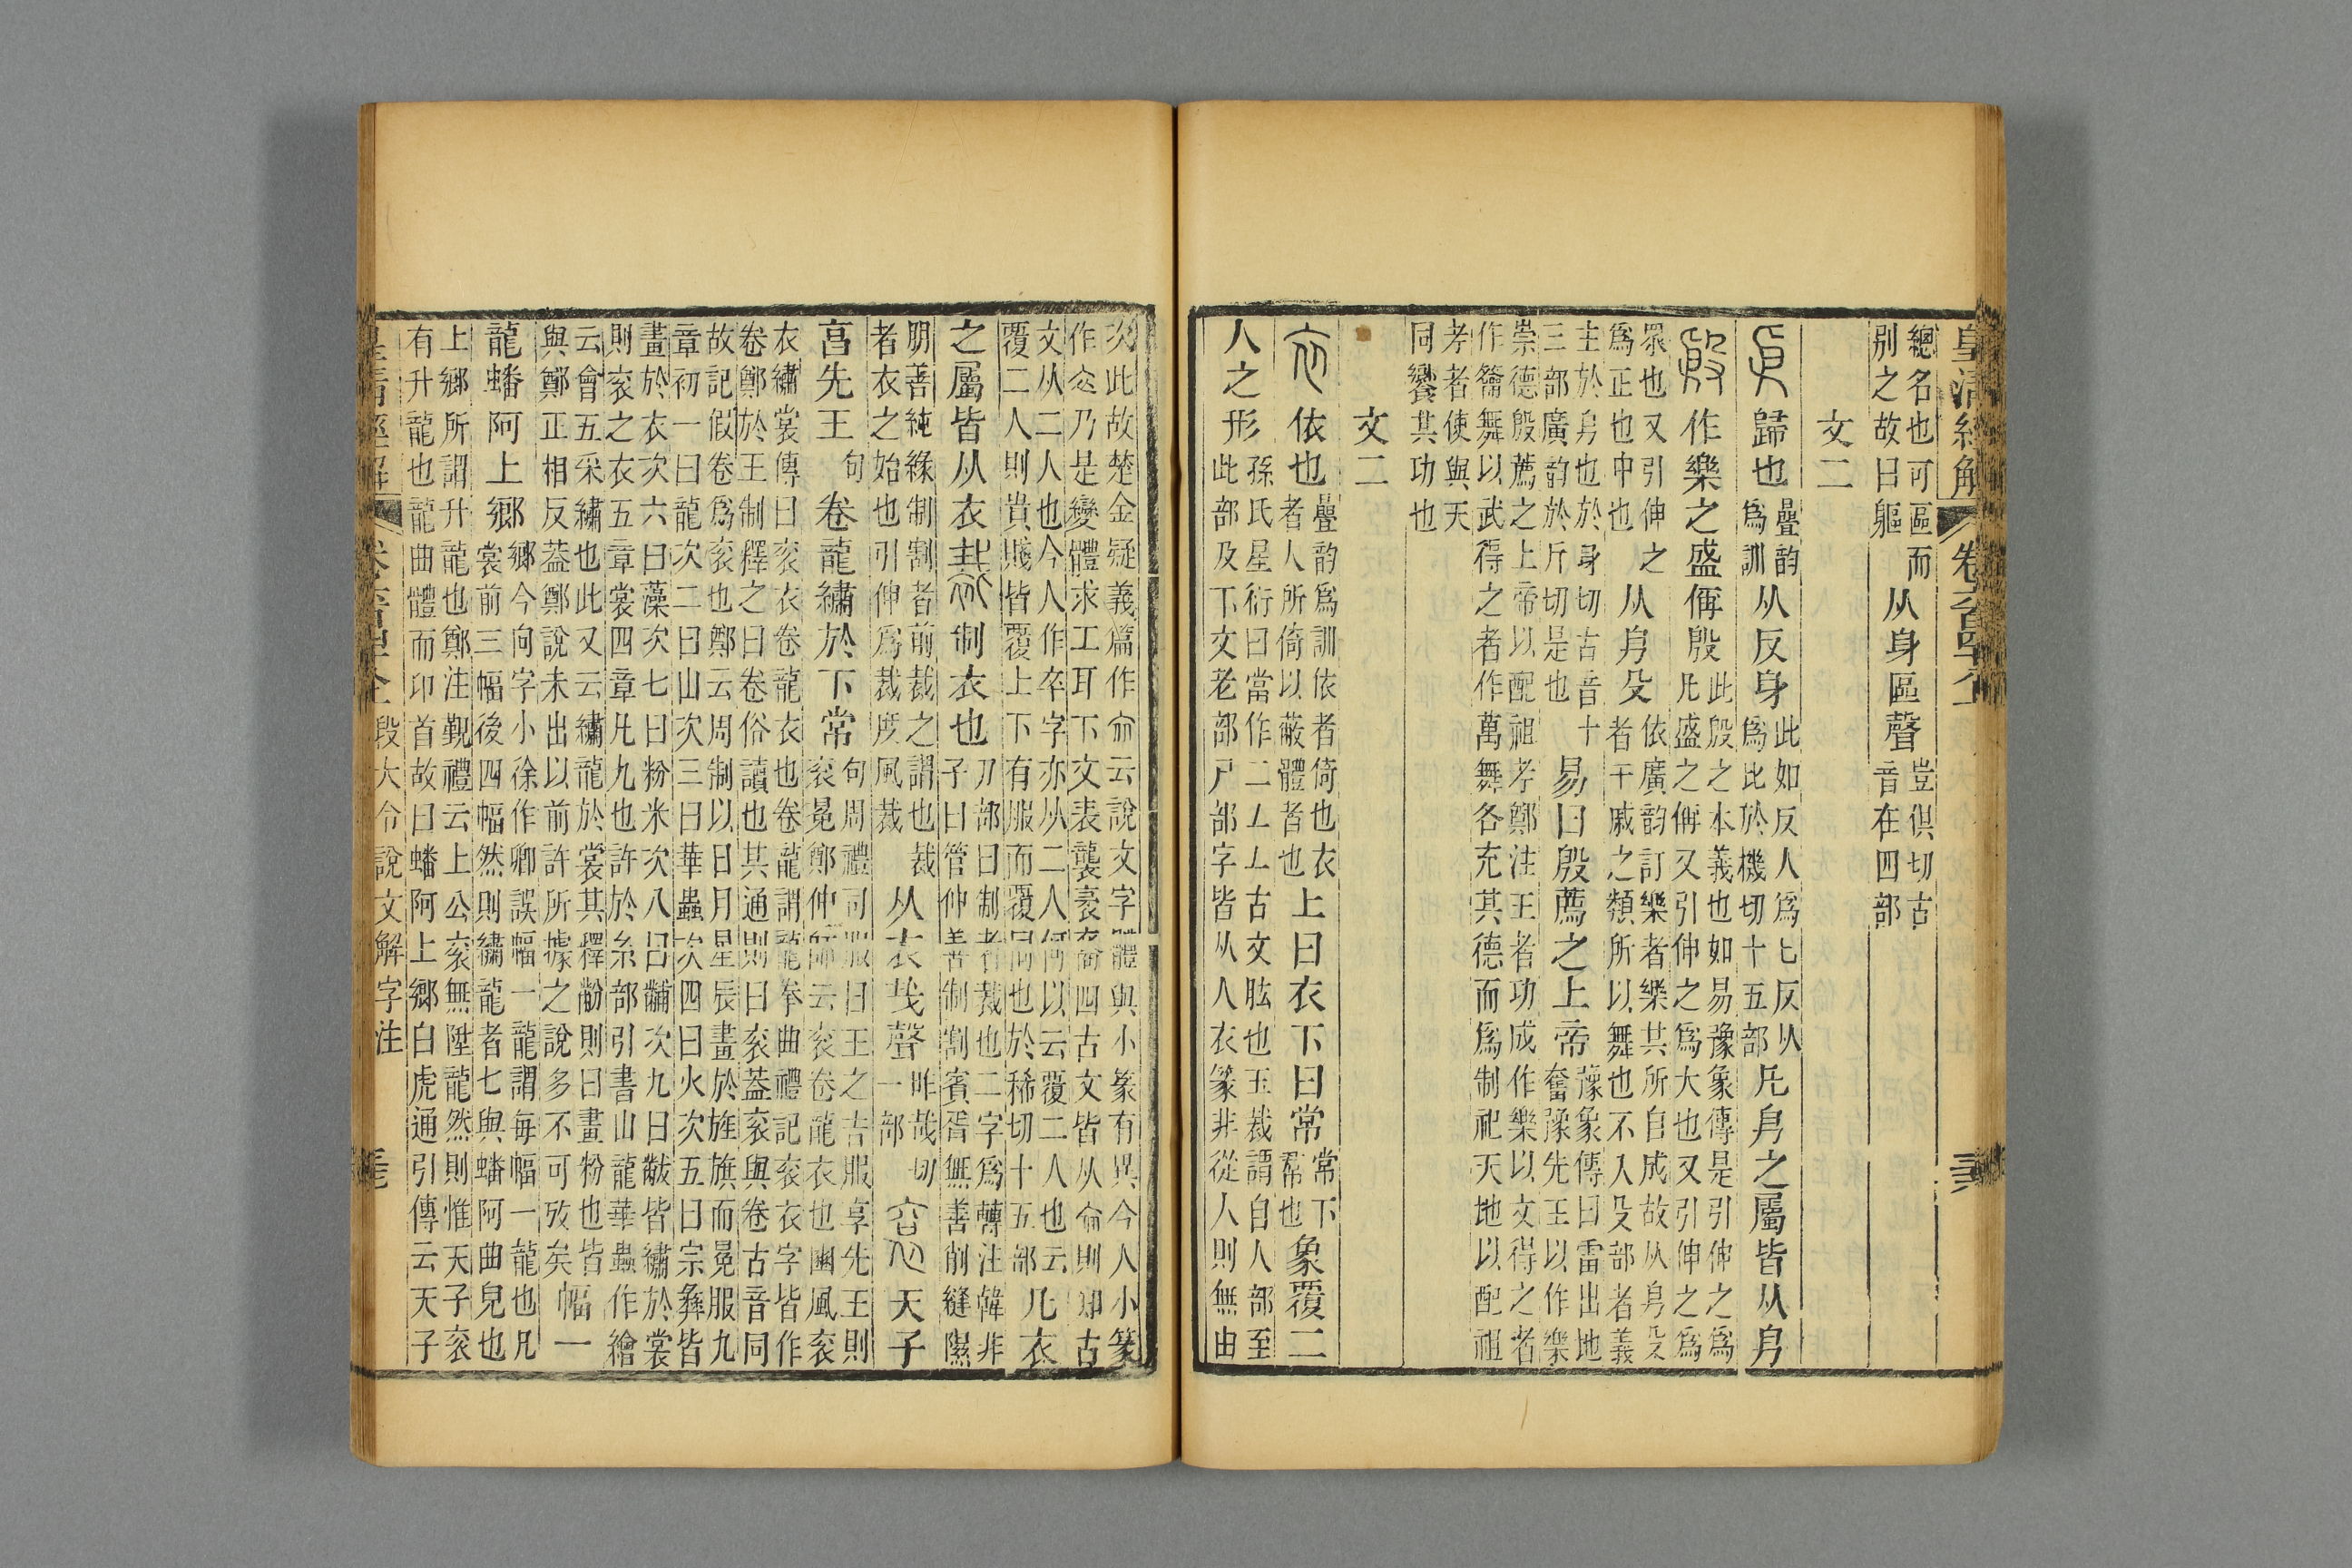 皇清經解 卷六百四十八
總名也可區而別之故曰軀从身區聲豈俱切古音在四部
文二
㐆歸也疊韵爲訓从反身此如反人爲匕反从爲比於機切十五部凡㐆之屬皆从㐆
殷作樂之盛偁殷此殷之本義也如易豫象傳是引伸之爲凡盛之偁又引伸之爲大也又引伸之爲
眾也又引伸之爲正也中也从㐆殳依廣韵訂樂者樂其所自成故从㐆殳者干戚之類所以舞也不入殳部者義
主於㐆也於身切古音十三部廣韵於斤切是也易曰殷薦之上帝豫象傳曰雷出地奮豫先王以作樂
崇德殷薦之上帝以配祖考鄭注王者功成作樂以文得之者作籥舞以武得之者作萬舞各充其德而爲制祀天地以配祖
考者使與天同饗其功也
文二
衣依也疊韵爲訓依者倚也衣者人所倚以蔽體者也上曰衣下曰常常下帬也象覆二
人之形孫氏星衍曰當作二厶厶古文肱也玉裁謂自人部至此部及下文老部尸部字皆从人衣篆非從人則無由
次此故楚金疑義篇作㐺云說文字體與小篆有異今人小篆作㐺乃是變體求工耳下文表襲袤裔四古文皆从㐺則知古
文从二人也今人作卒字亦从二人何以云覆二人也云覆二人則貴賤皆覆上下有服而覆同也於稀切十五部凡衣
之屬皆从衣裁制衣也刀部曰制者裁也二字爲轉注韓非子曰管仲善制割賓胥無善削縫隰
朋善純緣制割者前裁之謂也裁者衣之始也引伸爲裁度風裁从衣𢦏聲昨哉切一部袞天子
亯先王句卷龍繡於下常句周禮司服曰王之吉服享先王則袞冕鄭仲師云袞卷龍衣也豳風袞
衣繡裳傳曰袞衣卷龍衣也卷龍謂龍拳曲禮記袞衣字皆作卷鄭於王制釋之曰卷俗讀也其通則曰袞葢袞與卷古音同
故記假卷爲袞也鄭云周制以日月星辰畫於旌旗而冕服九章初一曰龍次二曰山次三曰華蟲次四曰火次五曰宗彝皆
畫於衣次六曰藻次七曰粉米次八曰黼次九曰黻皆繡於裳則袞之衣五章裳四章凡九也許於糸部引書山龍華蟲作繪
云會五采繡也此又云繡龍於裳其釋黺則曰畫粉也皆與鄭正相反葢鄭說未出以前許所據之說多不可攷矣幅一
龍蟠阿上鄉鄉今向字小徐作卿誤幅一龍謂每幅一龍也凡裳前三幅後四幅然則繡龍者七與蟠阿曲皃也
上鄉所謂升龍也鄭注覲禮云上公袞無陞龍然則惟天子袞有升龍也龍曲體而卬首故曰蟠阿上鄉白虎通引傳云天子
皇清經解 卷六百四十八 段大令說文解字注